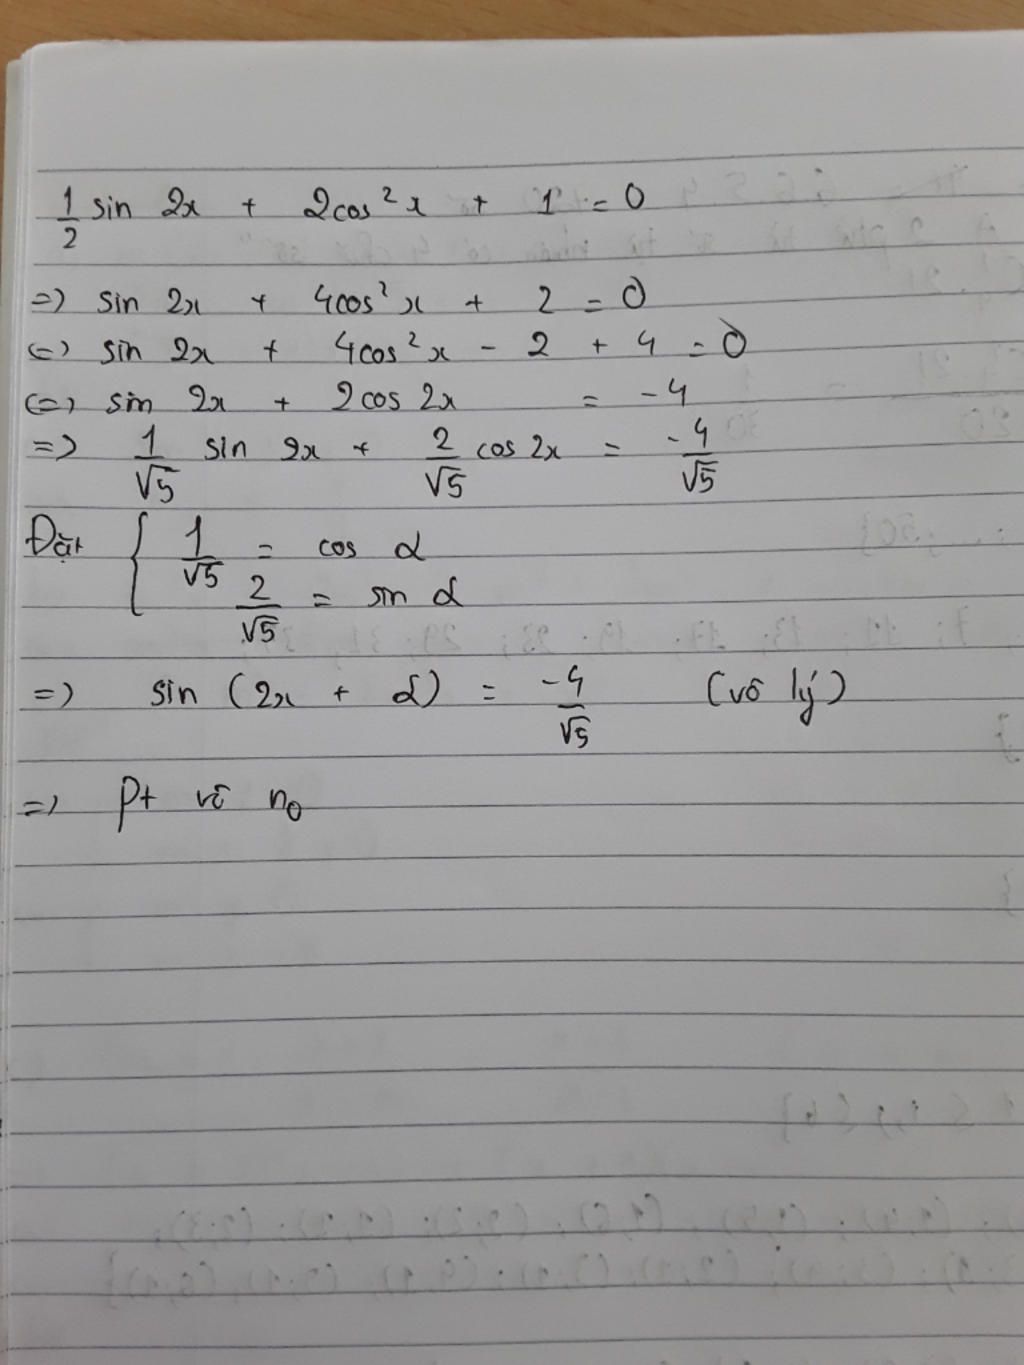 1/2 sin 2x + 2cos²x + 1 = 0
=> sin 2x + 4cos²x + 2 = 0
<=> sin 2x + 4cos²x - 2 + 4 = 0
<=> sin 2x + 2cos 2x = -4
=> 1/√5 sin 2x + 2/√5 cos 2x = -4/√5
Đặt { 1/√5 = cos α
2/√5 = sin α
=> sin (2x + α) = -4/√5 (vô lý)
=> Pt vô n₀